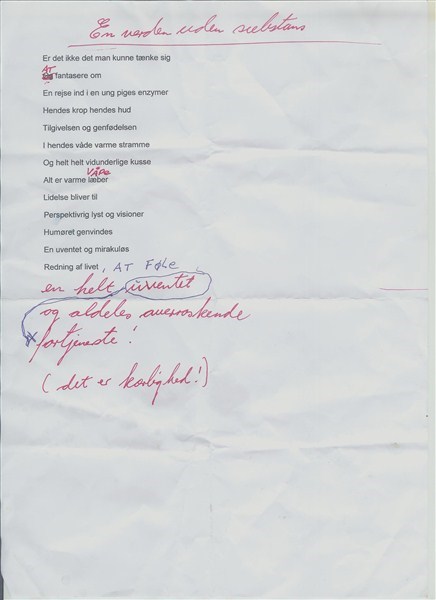 En verden uden substans
Er det ikke det man kunne tænke sig
AT fantasere om
En rejse ind i en ung piges enzymer
Hendes krop hendes hud
Tilgivelsen og genfødelsen
I hendes våde varme stramme
Og helt helt vidunderlige kusse
VÅDE
Alt er varme læber
Lidelse bliver til
Perspektivrig lyst og visioner
Humøret genvindes
En uventet og mirakuløs
Redning af livet, AT FØLE
en helt uventet
og aldeles
fortjeneste!
(det er kærlighed!)